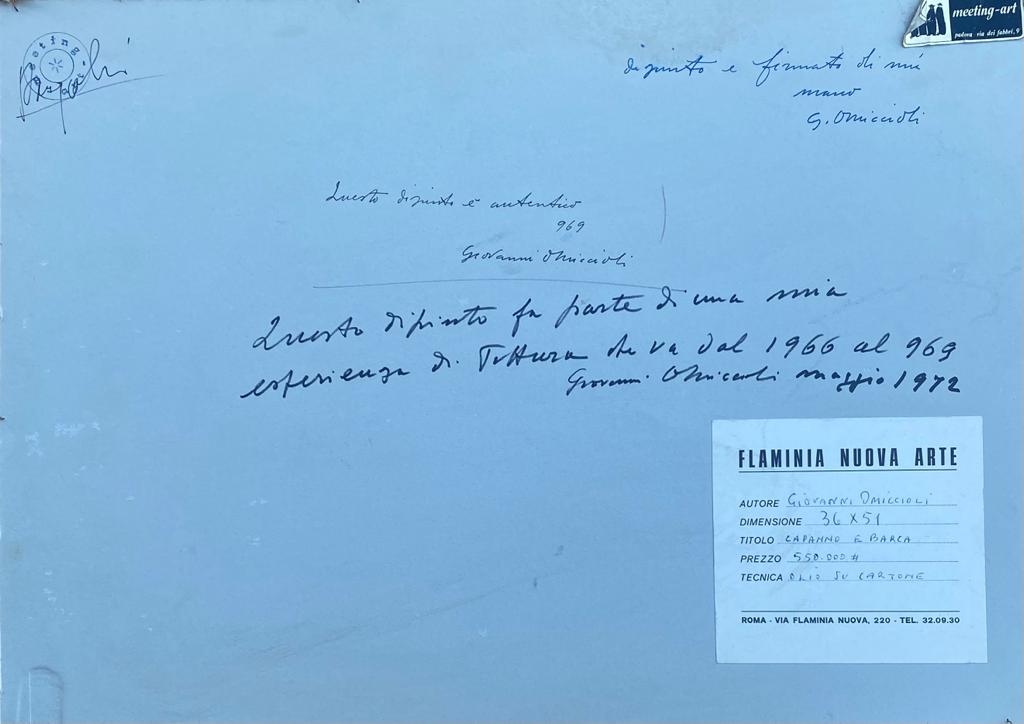 meeting-art
padova via dei fabbri, 9
meeting
dipinto e firmato di mia
mano
G. Omiccioli
Questo dipinto è autentico
969
Giovanni Omiccioli
Questo dipinto fa parte di una mia
esperienza di Pittura che va dal 1966 al 969
Giovanni Omiccioli maggio 1972
FLAMINIA NUOVA ARTE
AUTORE GIOVANNI OMICCIOLI
DIMENSIONE 36 X 51
TITOLO CAPANNO E BARCA
PREZZO 550.000 #
TECNICA OLIO SU CARTONE
ROMA - VIA FLAMINIA NUOVA, 220 - TEL. 32.09.30